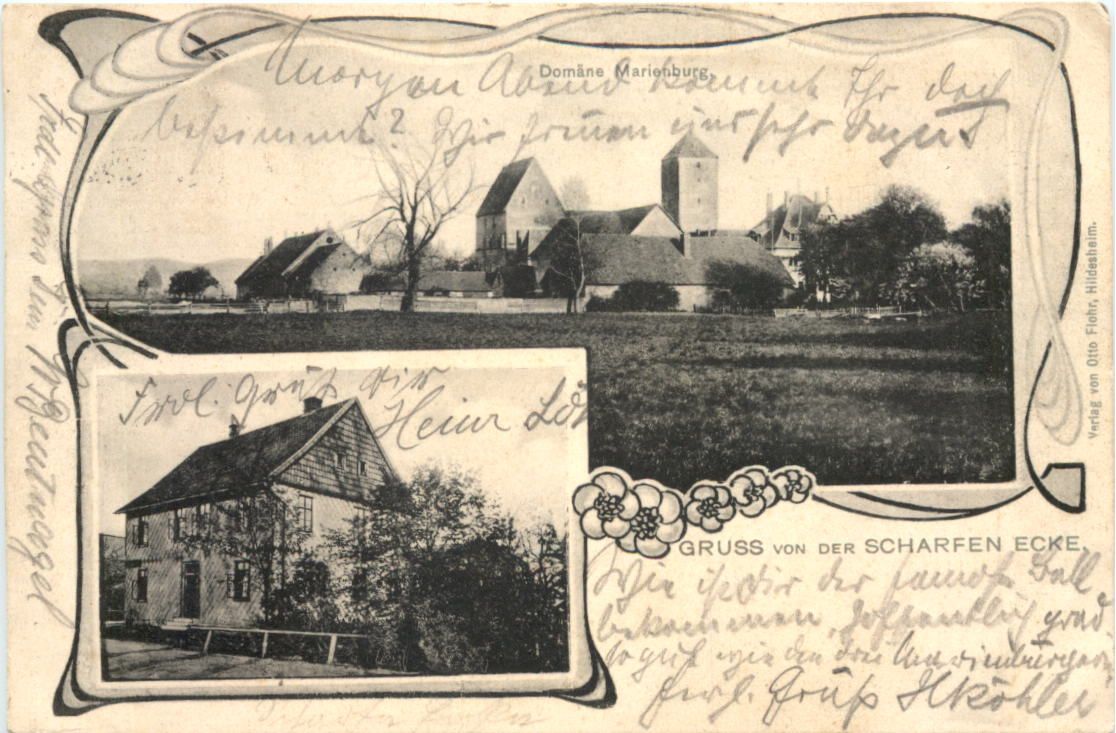 Domäne Marienburg.
Morgen Abend kommt Ihr doch
bestimmt? Wir freuen uns sehr dazu
Frdl. Gruß Dir
Heinr
Verlag von Otto Flohr, Hildesheim.
GRUSS VON DER SCHARFEN ECKE.
Wie ist Dir der famose Ball
bekommen, hoffentlich grad
so gut wie den drei Marienburgern
Frdl. Gruß H Köhler